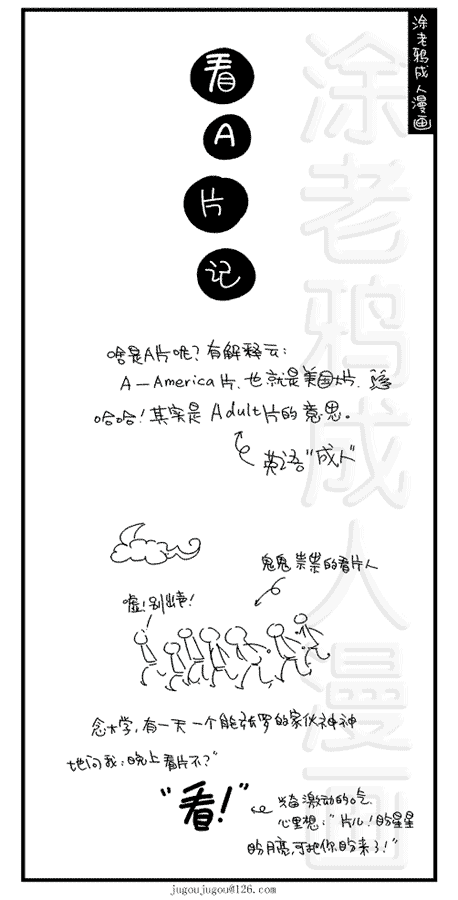 涂老鸦成人漫画
涂老鸦成人漫画
看A片记
啥是A片呢?有解释云:
A—America片,也就是美国大片,
哈哈!其实是Adult片的意思。
英语"成人"
鬼鬼祟祟的看片人
嘘!别出声!
念大学,有一天一个能张罗的家伙神神
地问我:晚上看片不?"
"看!"
兴奋激动的吃,
心里想:"片儿!盼星星
盼月亮,可把你盼来了!"
jugoujugou@126.com